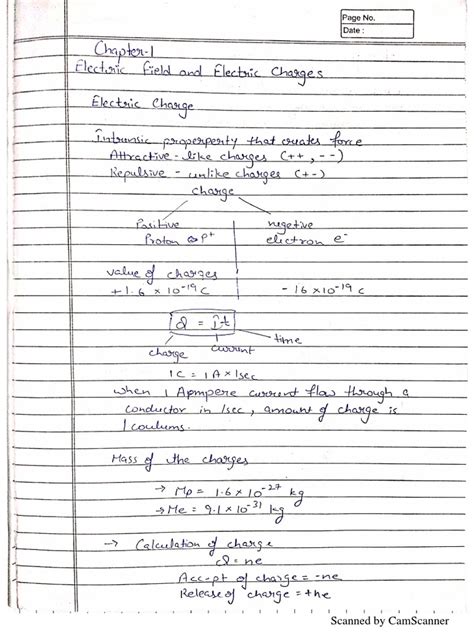 Page No.
Date :
Chapter-1
Electric field and Electric Charges
Electric Charge
Intrinsic properperty that creates force
Attractive - like charges (++, --)
Repulsive - unlike charges (+-)
charge
Positive negetive
Proton P+ electron e-
value of charges
+1.6 x 10-19 C -16 x10-19 C
Q = It
charge current time
1C = 1A x 1sec
when 1 Apmpere current flow through a
conductor in 1sec, amount of charge is
1 coulums.
Mass of the charges
→ Mp = 1.6 x 10-27 kg
→ Me = 9.1 x 10-31 kg
→ Calculation of charge
Q = ne
Accept of charge = -ne
Release of charge = +ne
Scanned by CamScanner